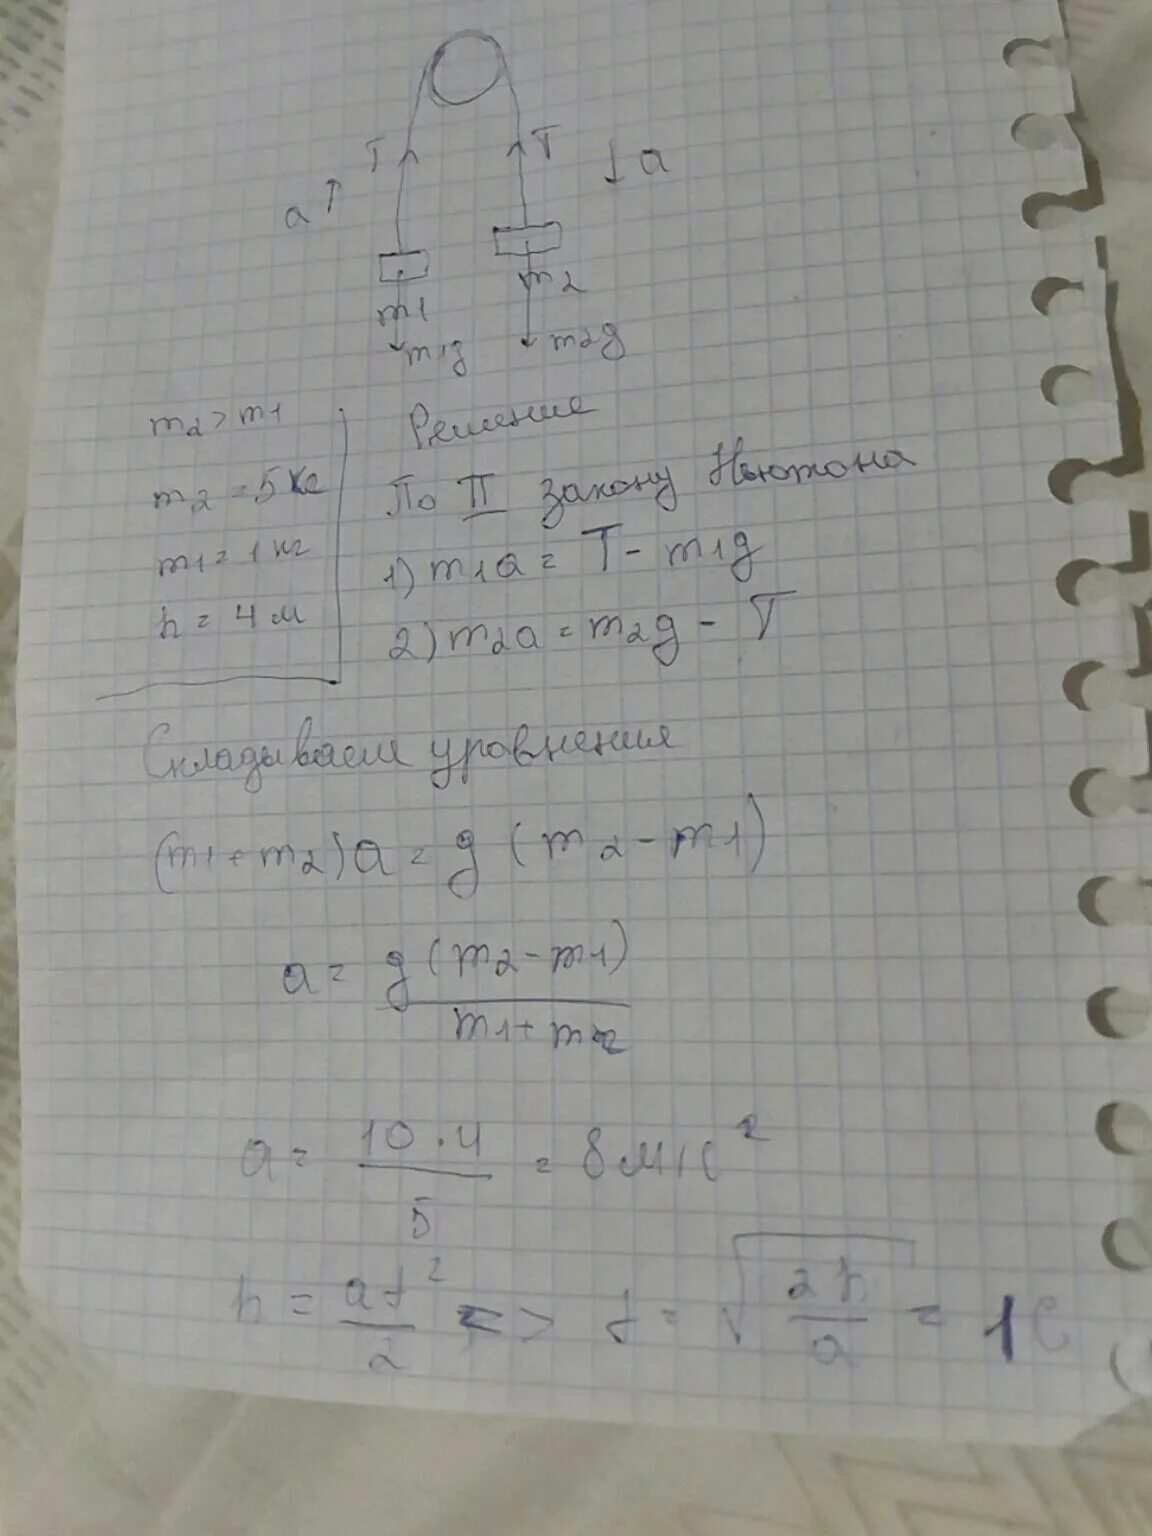 T T ↓a
a↑
m1 m2
m1g m2g
m2 > m1
m2 = 5 кг
m1 = 1 кг
h = 4 м
Решение
По II закону Ньютона
1) m1a = T - m1g
2) m2a = m2g - T
Складываем уравнения
(m1 + m2)a = g (m2 - m1)
a = g(m2 - m1) / m1 + m2
a = 10 · 4 / 5 = 8 м/с²
h = at² / 2 => t = √(2h / a) = 1 с